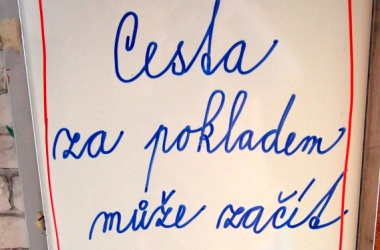 Cesta
za pokladem
může začít